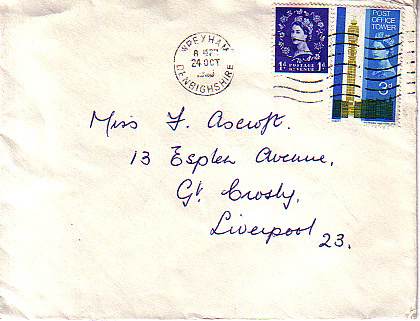 WREXHAM
24 OCT
DENBIGHSHIRE
1D POSTAGE 1D
REVENUE
POST
OFFICE
TOWER
3D
Miss F. Ascroft.
13 Esplen Avenue,
Gt. Crosby,
Liverpool 23.